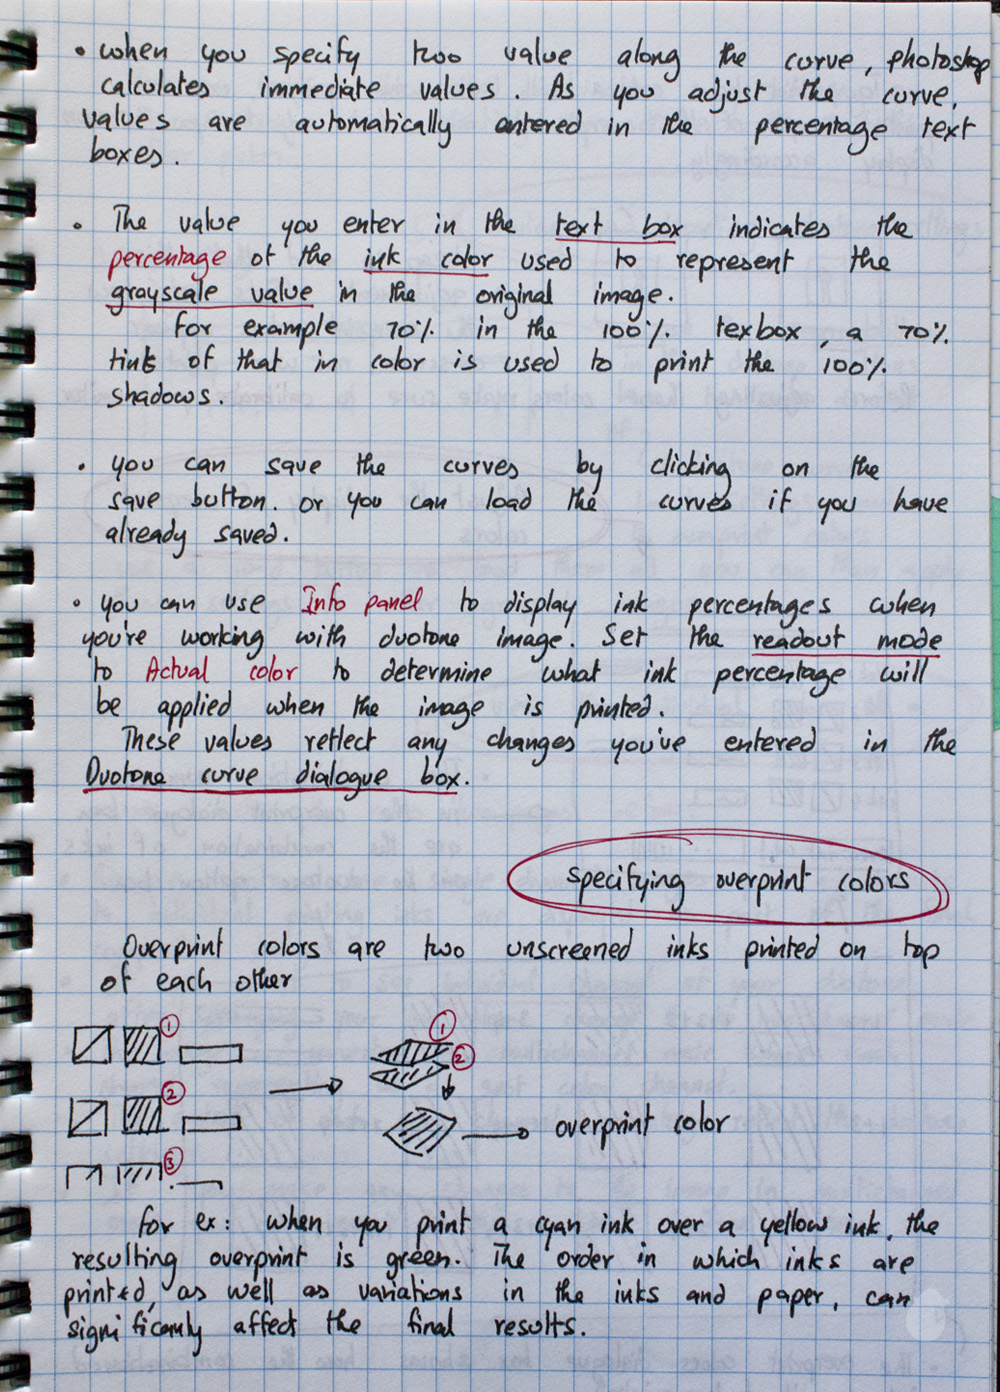 • when you specify two value along the curve, photoshop
calculates immediate values. As you adjust the curve,
values are automatically entered in the percentage text
boxes.
• The value you enter in the text box indicates the
percentage of the ink color used to represent the
grayscale value in the original image.
For example 70% in the 100% texbox, a 70%
tink of that in color is used to print the 100%
shadows.
• you can save the curves by clicking on the
save button. or you can load the curves if you have
already saved.
• you can use Info panel to display ink percentages when
you're working with duotone image. Set the readout mode
to Actual color to determine what ink percentage will
be applied when the image is printed.
These values reflect any changes you've entered in the
Duotone curve dialogue box.
specifying overprint colors
Overprint colors are two unscreened inks printed on top
of each other
1
2
3
1
2
overprint color
for ex: when you print a cyan ink over a yellow ink, the
resulting overprint is green. The order in which inks are
printed, as well as variations in the inks and paper, can
significanly affect the final results.